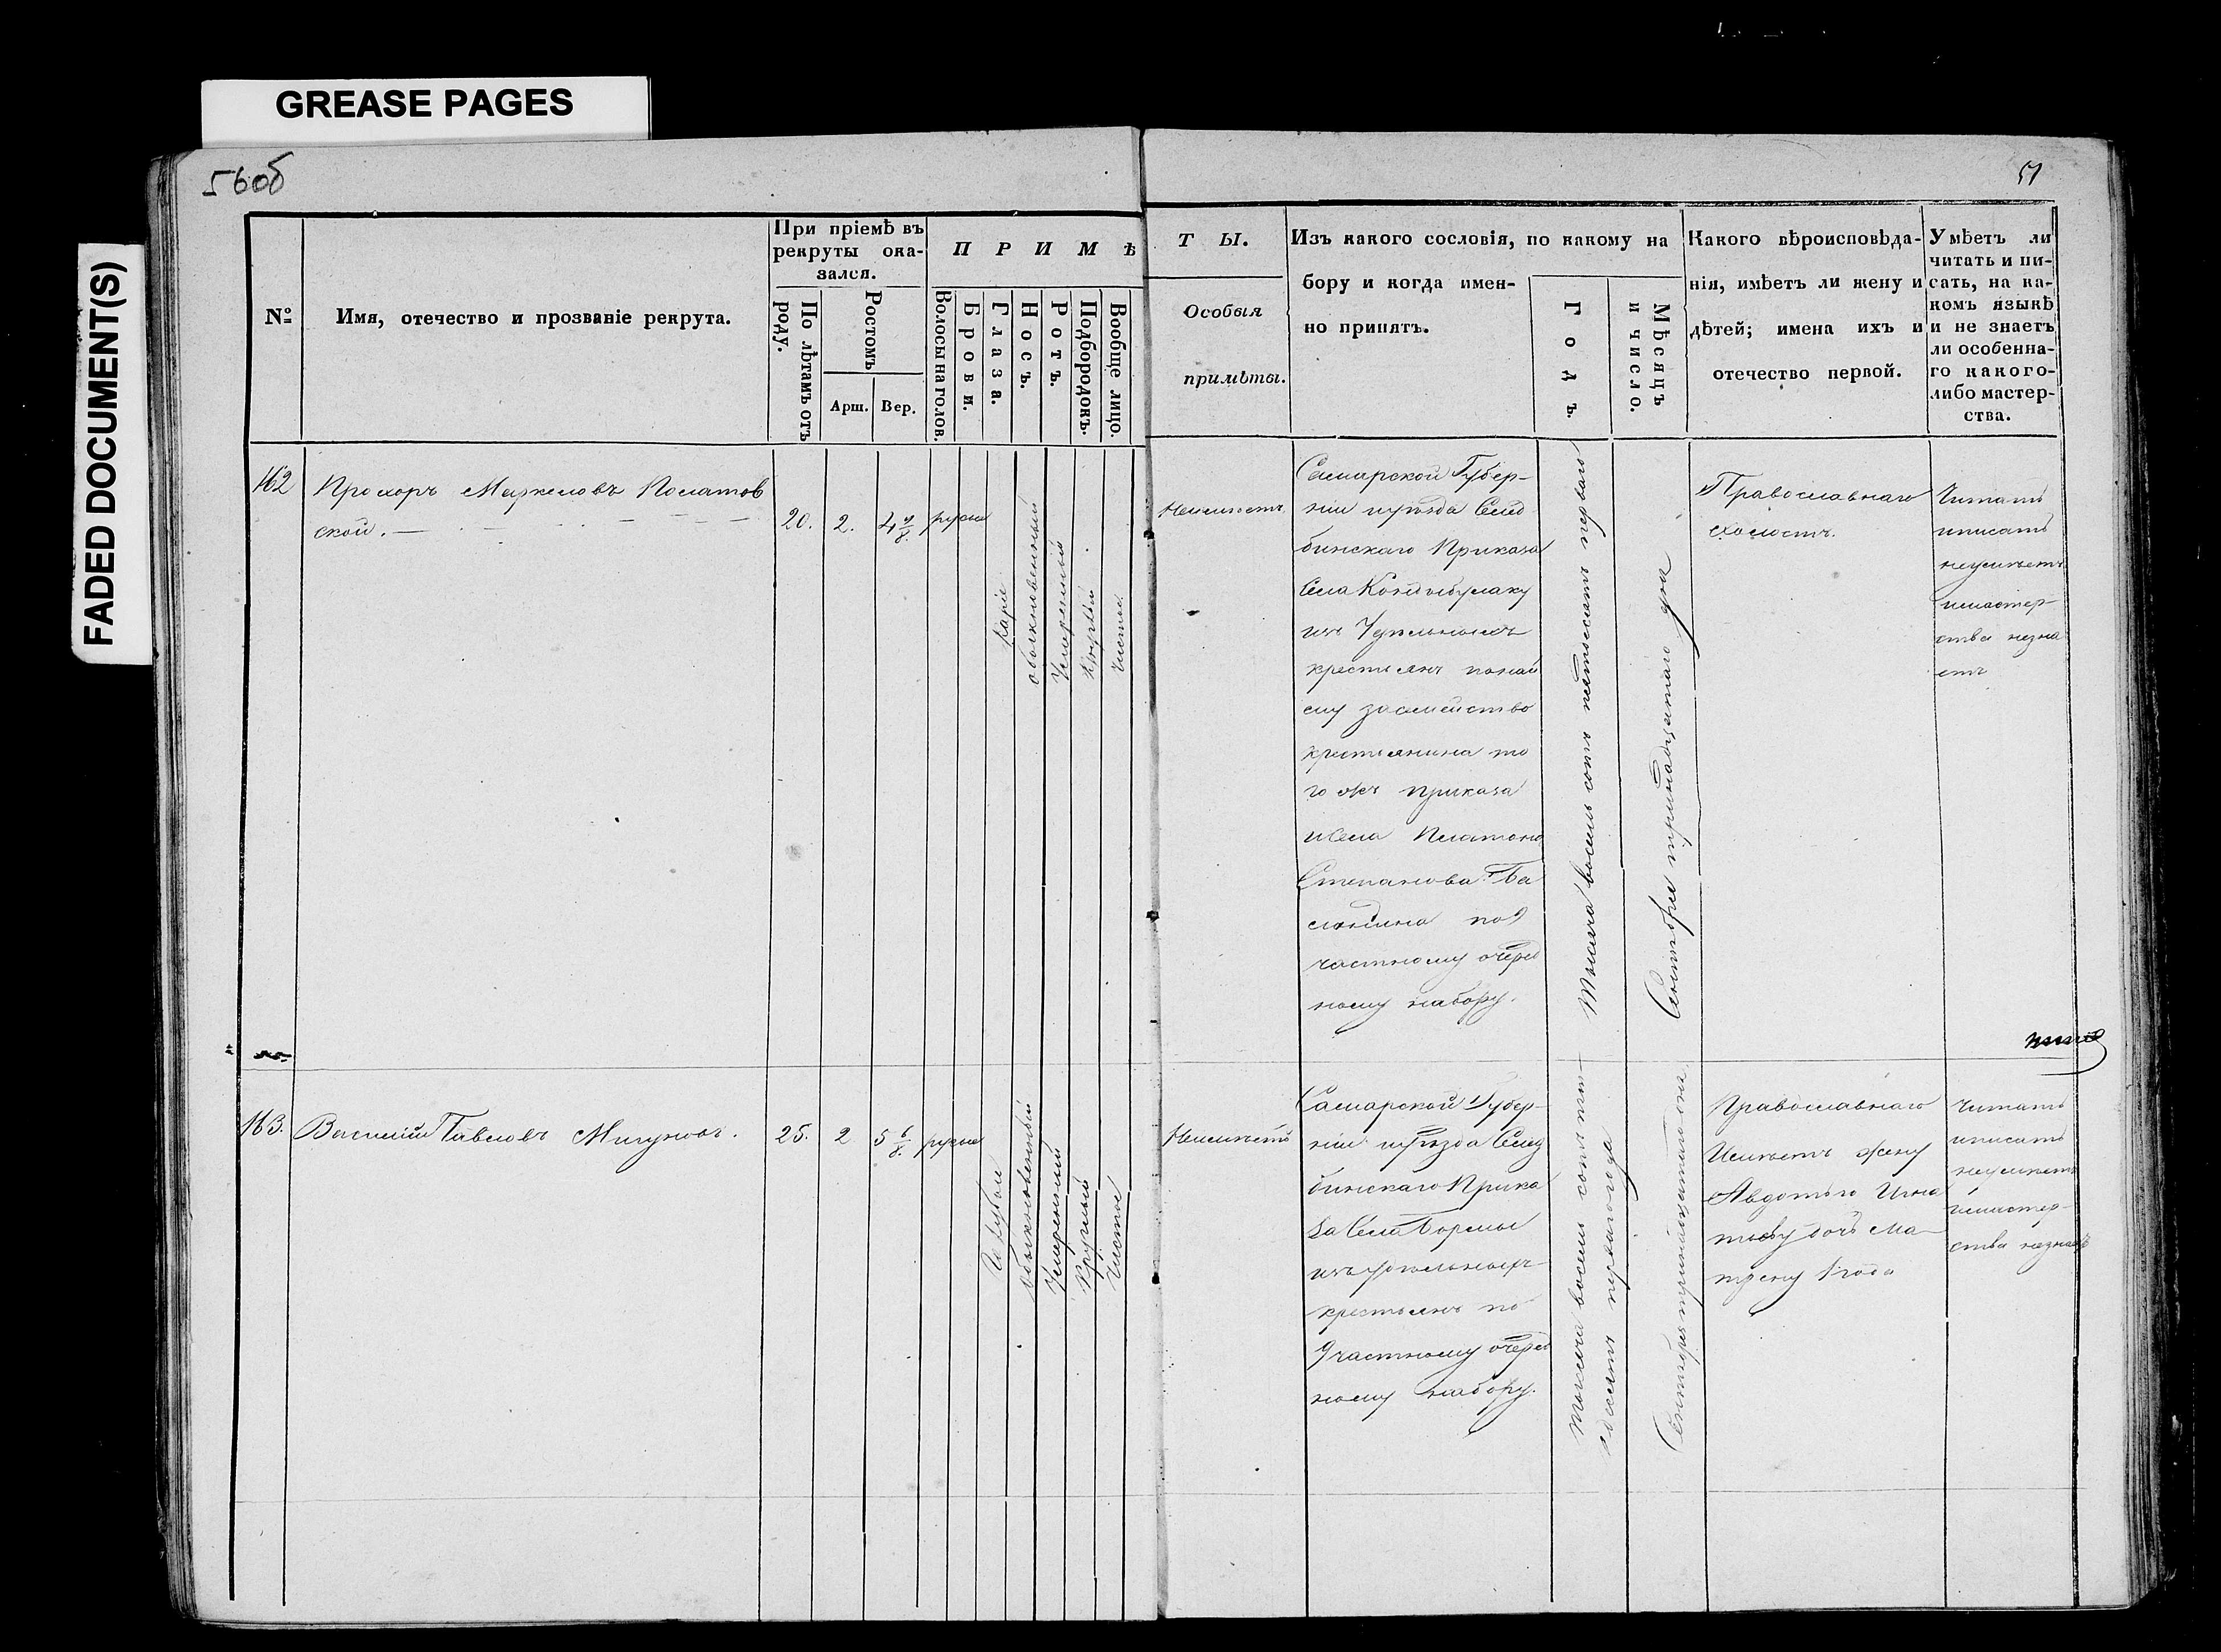 GREASE PAGES
FADED DOCUMENT(S)
56об
51
№
Имя, отечество и прозваніе рекрута.
При пріемѣ въ
рекруты ока-
зался.
По лѣтамъ отъ
роду.
Ростомъ
Арш.
Вер.
П Р И М Ѣ
Волосы на голов.
Брови.
Глаза.
Носъ.
Ротъ.
Подбородокъ.
Вообще лицо.
Т Ы.
Особыя
примѣты.
Изъ какого сословія, по какому на
бору и когда имен-
но принятъ.
Годъ.
Мѣсяцъ
и число.
Какого вѣроисповѣда-
нія, имѣетъ ли жену и
дѣтей; имена ихъ и
отечество первой.
Умѣетъ ли
читать и пи-
сать, на ка-
комъ языкѣ
и не знаетъ
ли особенна-
го какого-
либо мастер-
ства.
162
Прохоръ Маркеловъ
ской.
20.
2.
4 4/8.
русые
каріе
обыкновенный
Умеренный
Круглый
Чистое.
Неимѣетъ
Самарской Губер-
ніи иуѣзда
бинскаго Приказа
Села
изъ Удѣльныхъ
крестьянъ понай
му засемейство
крестьянина то
го жъ приказа
иСела Платона
Степанова Ба
по 9
частному очеред
ному набору.
Тысяча восемь сотъ первого
Сентября тринадцатого дня
Православнаго
холостъ.
Читать
иписать
неумѣетъ
имастер-
ства незна
етъ
163.
Василій Павловъ Мигуновъ.
25.
2
5 6/8.
русые
Голубые
Обыкновенный
Умеренный
Круглый
Чистое
Неимѣетъ
Самарской Губер-
ніи иуѣзда
бинскаго Прика
за Села Бормы
изъ удѣльныхъ
крестьянъ по
9 частному очеред
ному набору.
Тысяча восемь сотъ пят-
десятъ перваго года
Сентября тринадцатого дня
Православнаго
Имѣетъ жену
Авдотью Игна
тьеву дочь Ма-
трену 1 года
Читать
иписать
неумѣетъ
имастер-
ства незнаетъ